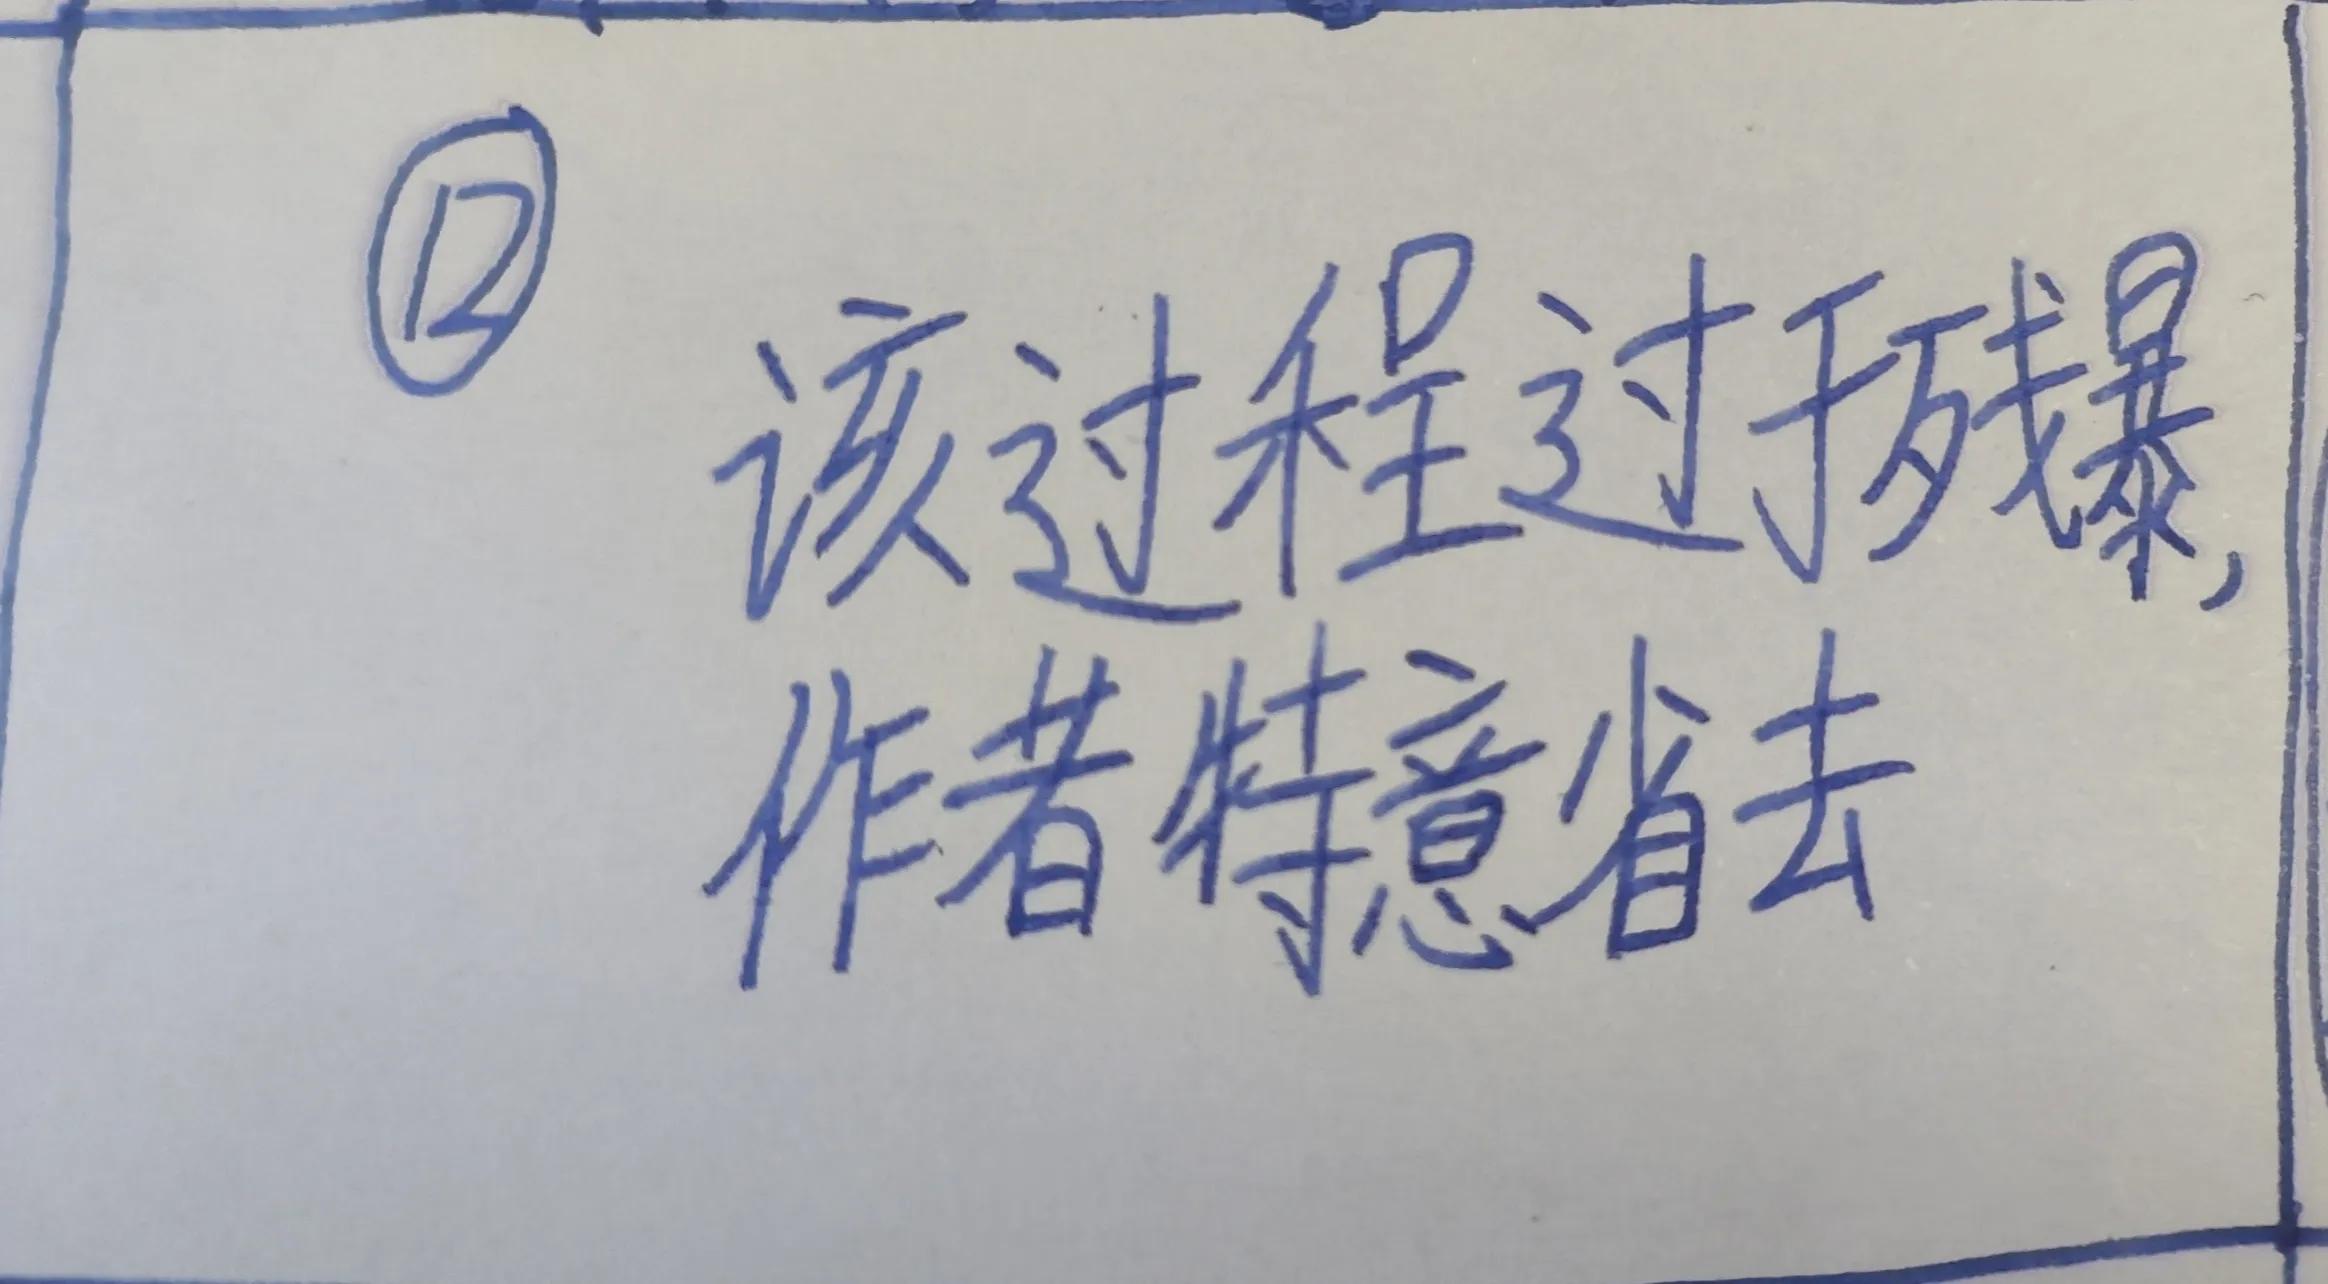 ⑫
该过程过于残暴,
作者特意省去